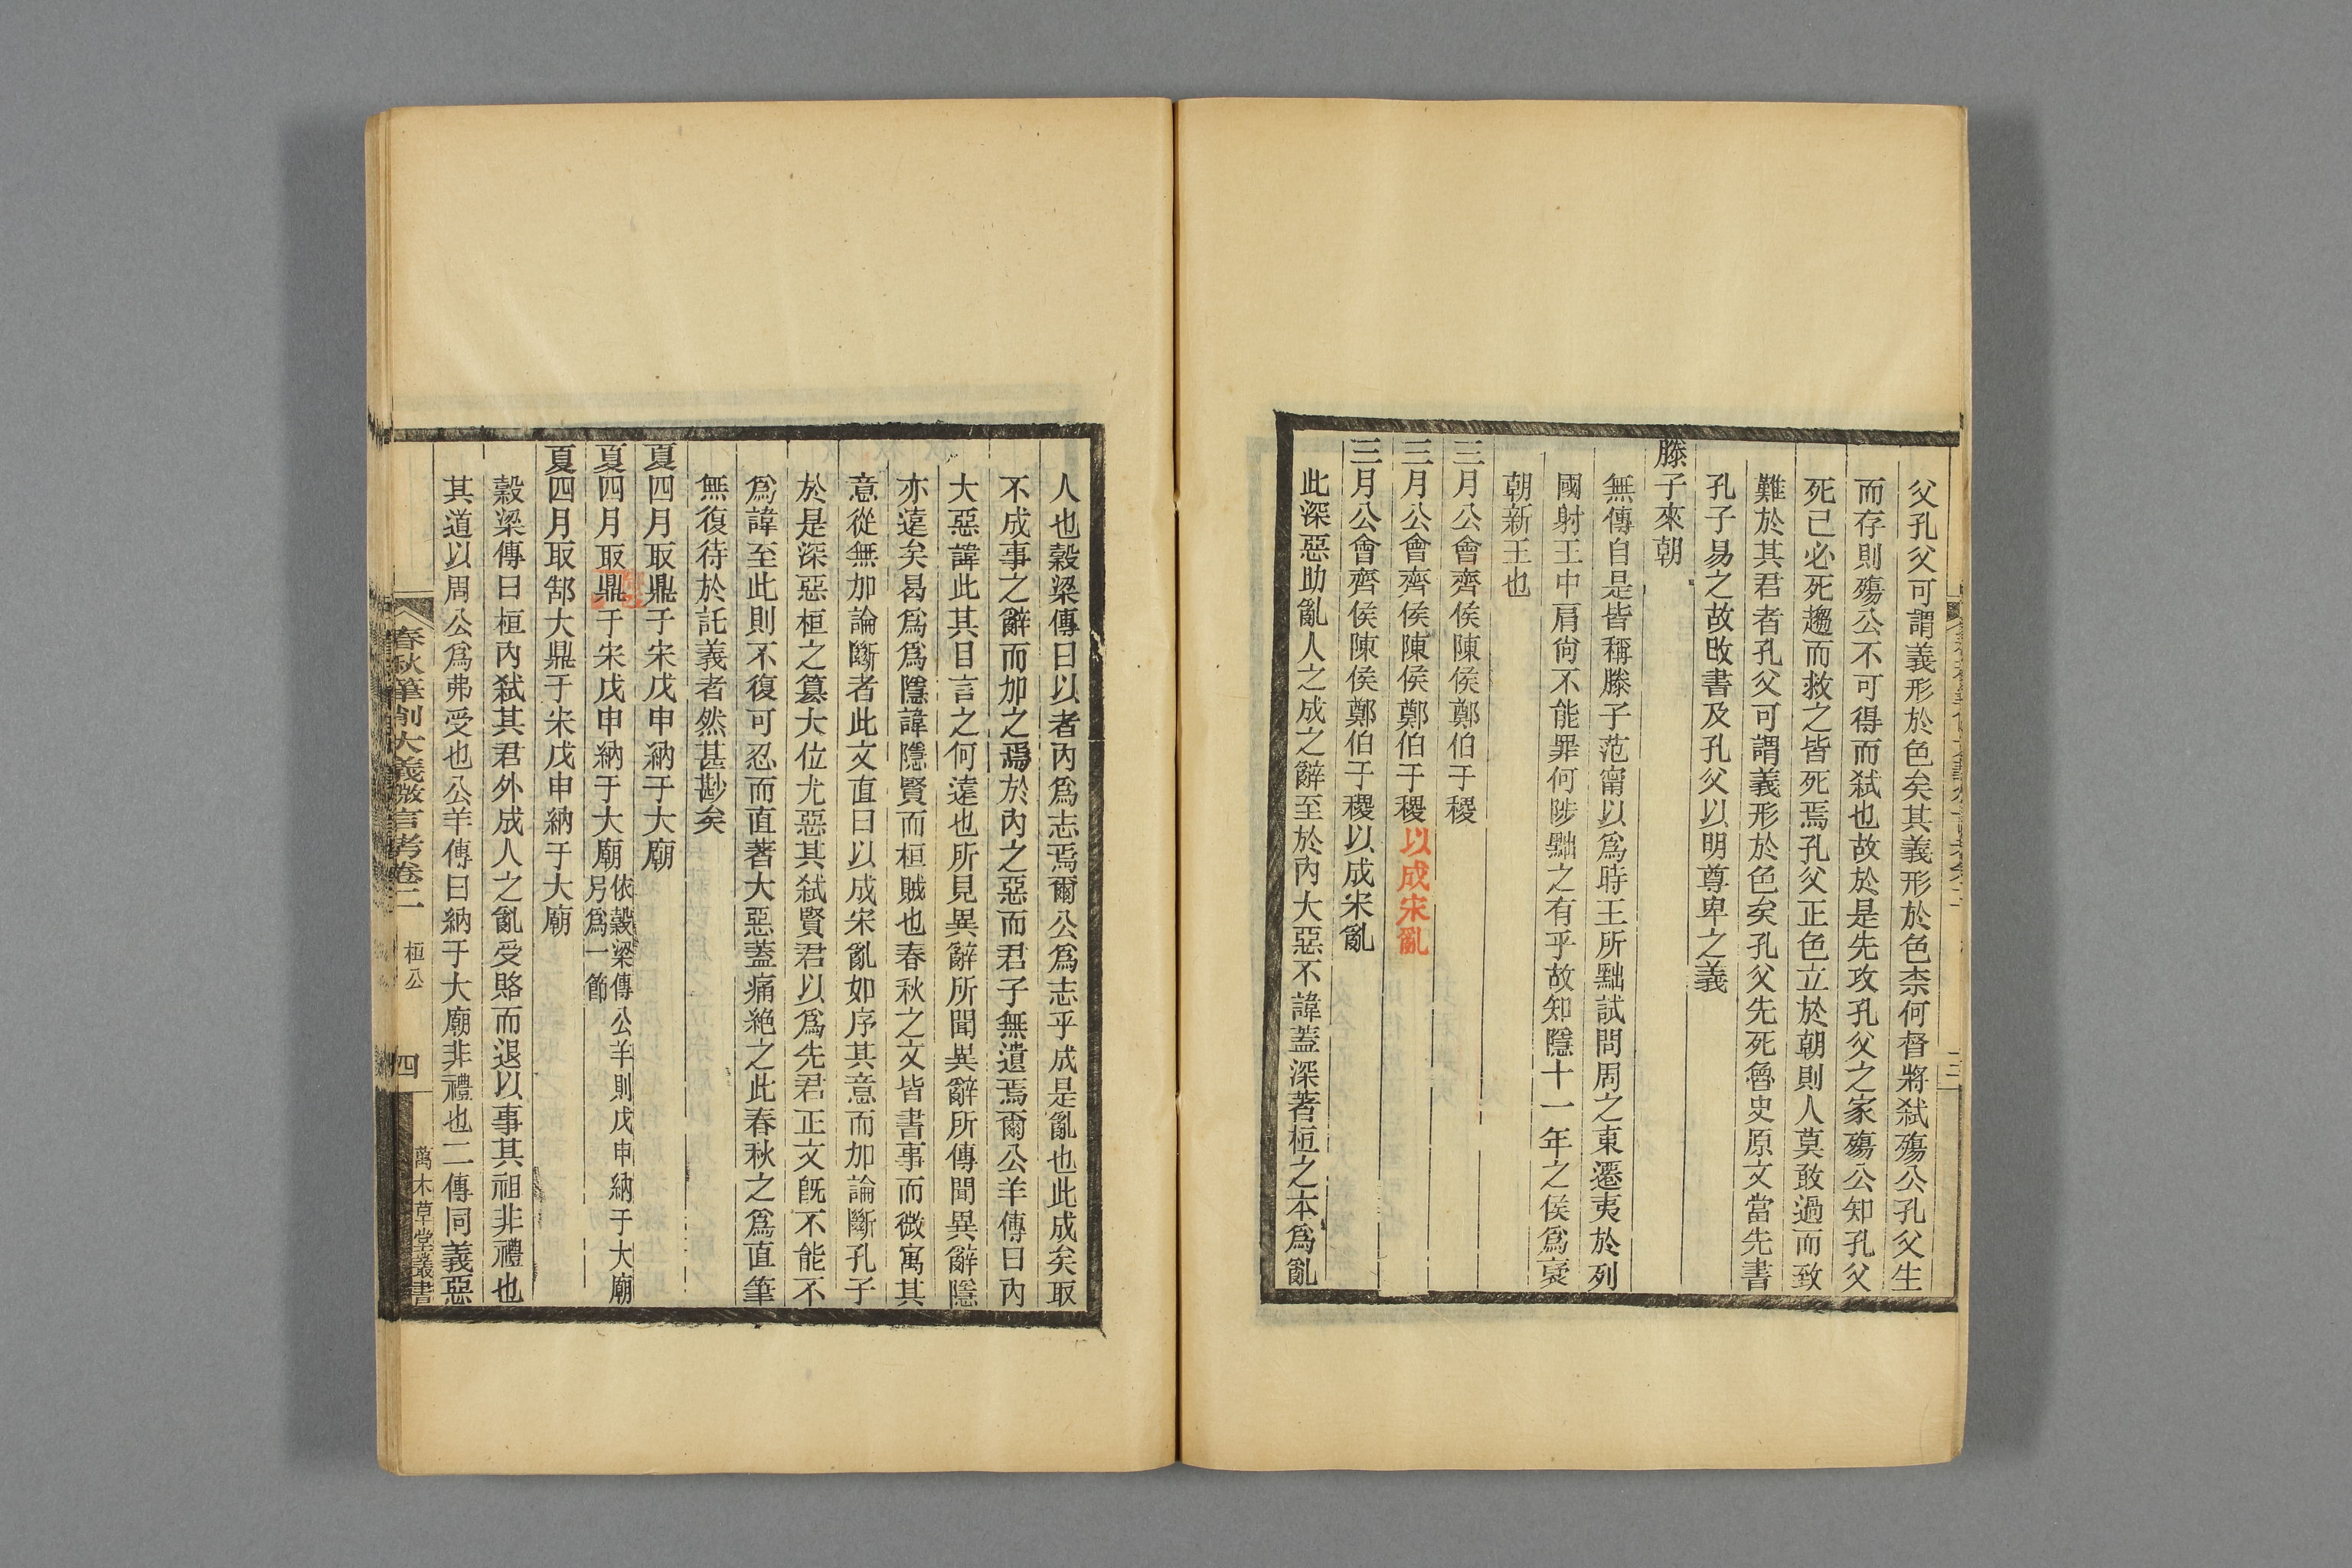 父孔父可謂義形於色矣其義形於色柰何督將弑殤公孔父生
而存則殤公不可得而弑也故於是先攻孔父之家殤公知孔父
死已必死趨而救之皆死焉孔父正色立於朝則人莫敢過而致
難於其君者孔父可謂義形於色矣孔父先死魯史原文當先書
孔子易之故改書及孔父以明尊卑之義
滕子來朝
無傳自是皆稱滕子范甯以爲時王所黜試問周之東遷夷於列
國射王中肩尙不能罪何陟黜之有乎故知隱十一年之侯爲襃
朝新王也
三月公會齊侯陳侯鄭伯于稷
三月公會齊侯陳侯鄭伯于稷以成宋亂
三月公會齊侯陳侯鄭伯于稷以成宋亂
此深惡助亂人之成之辭至於內大惡不諱蓋深著桓之本爲亂
人也穀梁傳曰以者內爲志焉爾公爲志乎成是亂也此成矣取
不成事之辭而加之焉於內之惡而君子無遺焉爾公羊傳曰內
大惡諱此其目言之何遠也所見異辭所聞異辭所傳聞異辭隱
亦遠矣曷爲爲隱諱隱賢而桓賊也春秋之文皆書事而微寓其
意從無加論斷者此文直曰以成宋亂如序其意而加論斷孔子
於是深惡桓之簒大位尤惡其弑賢君以爲先君正文旣不能不
爲諱至此則不復可忍而直著大惡蓋痛絕之此春秋之爲直筆
無復待於託義者然甚尠矣
夏四月取鼎于宋戊申納于大廟
夏四月取鼎于宋戊申納于大廟依穀梁傳公羊則戊申納于大廟
另爲一節
夏四月取郜大鼎于宋戊申納于大廟
穀梁傳曰桓內弑其君外成人之亂受賂而退以事其祖非禮也
其道以周公爲弗受也公羊傳曰納于大廟非禮也二傳同義惡
春秋筆削大義微言考卷二 桓公 四 萬木草堂叢書